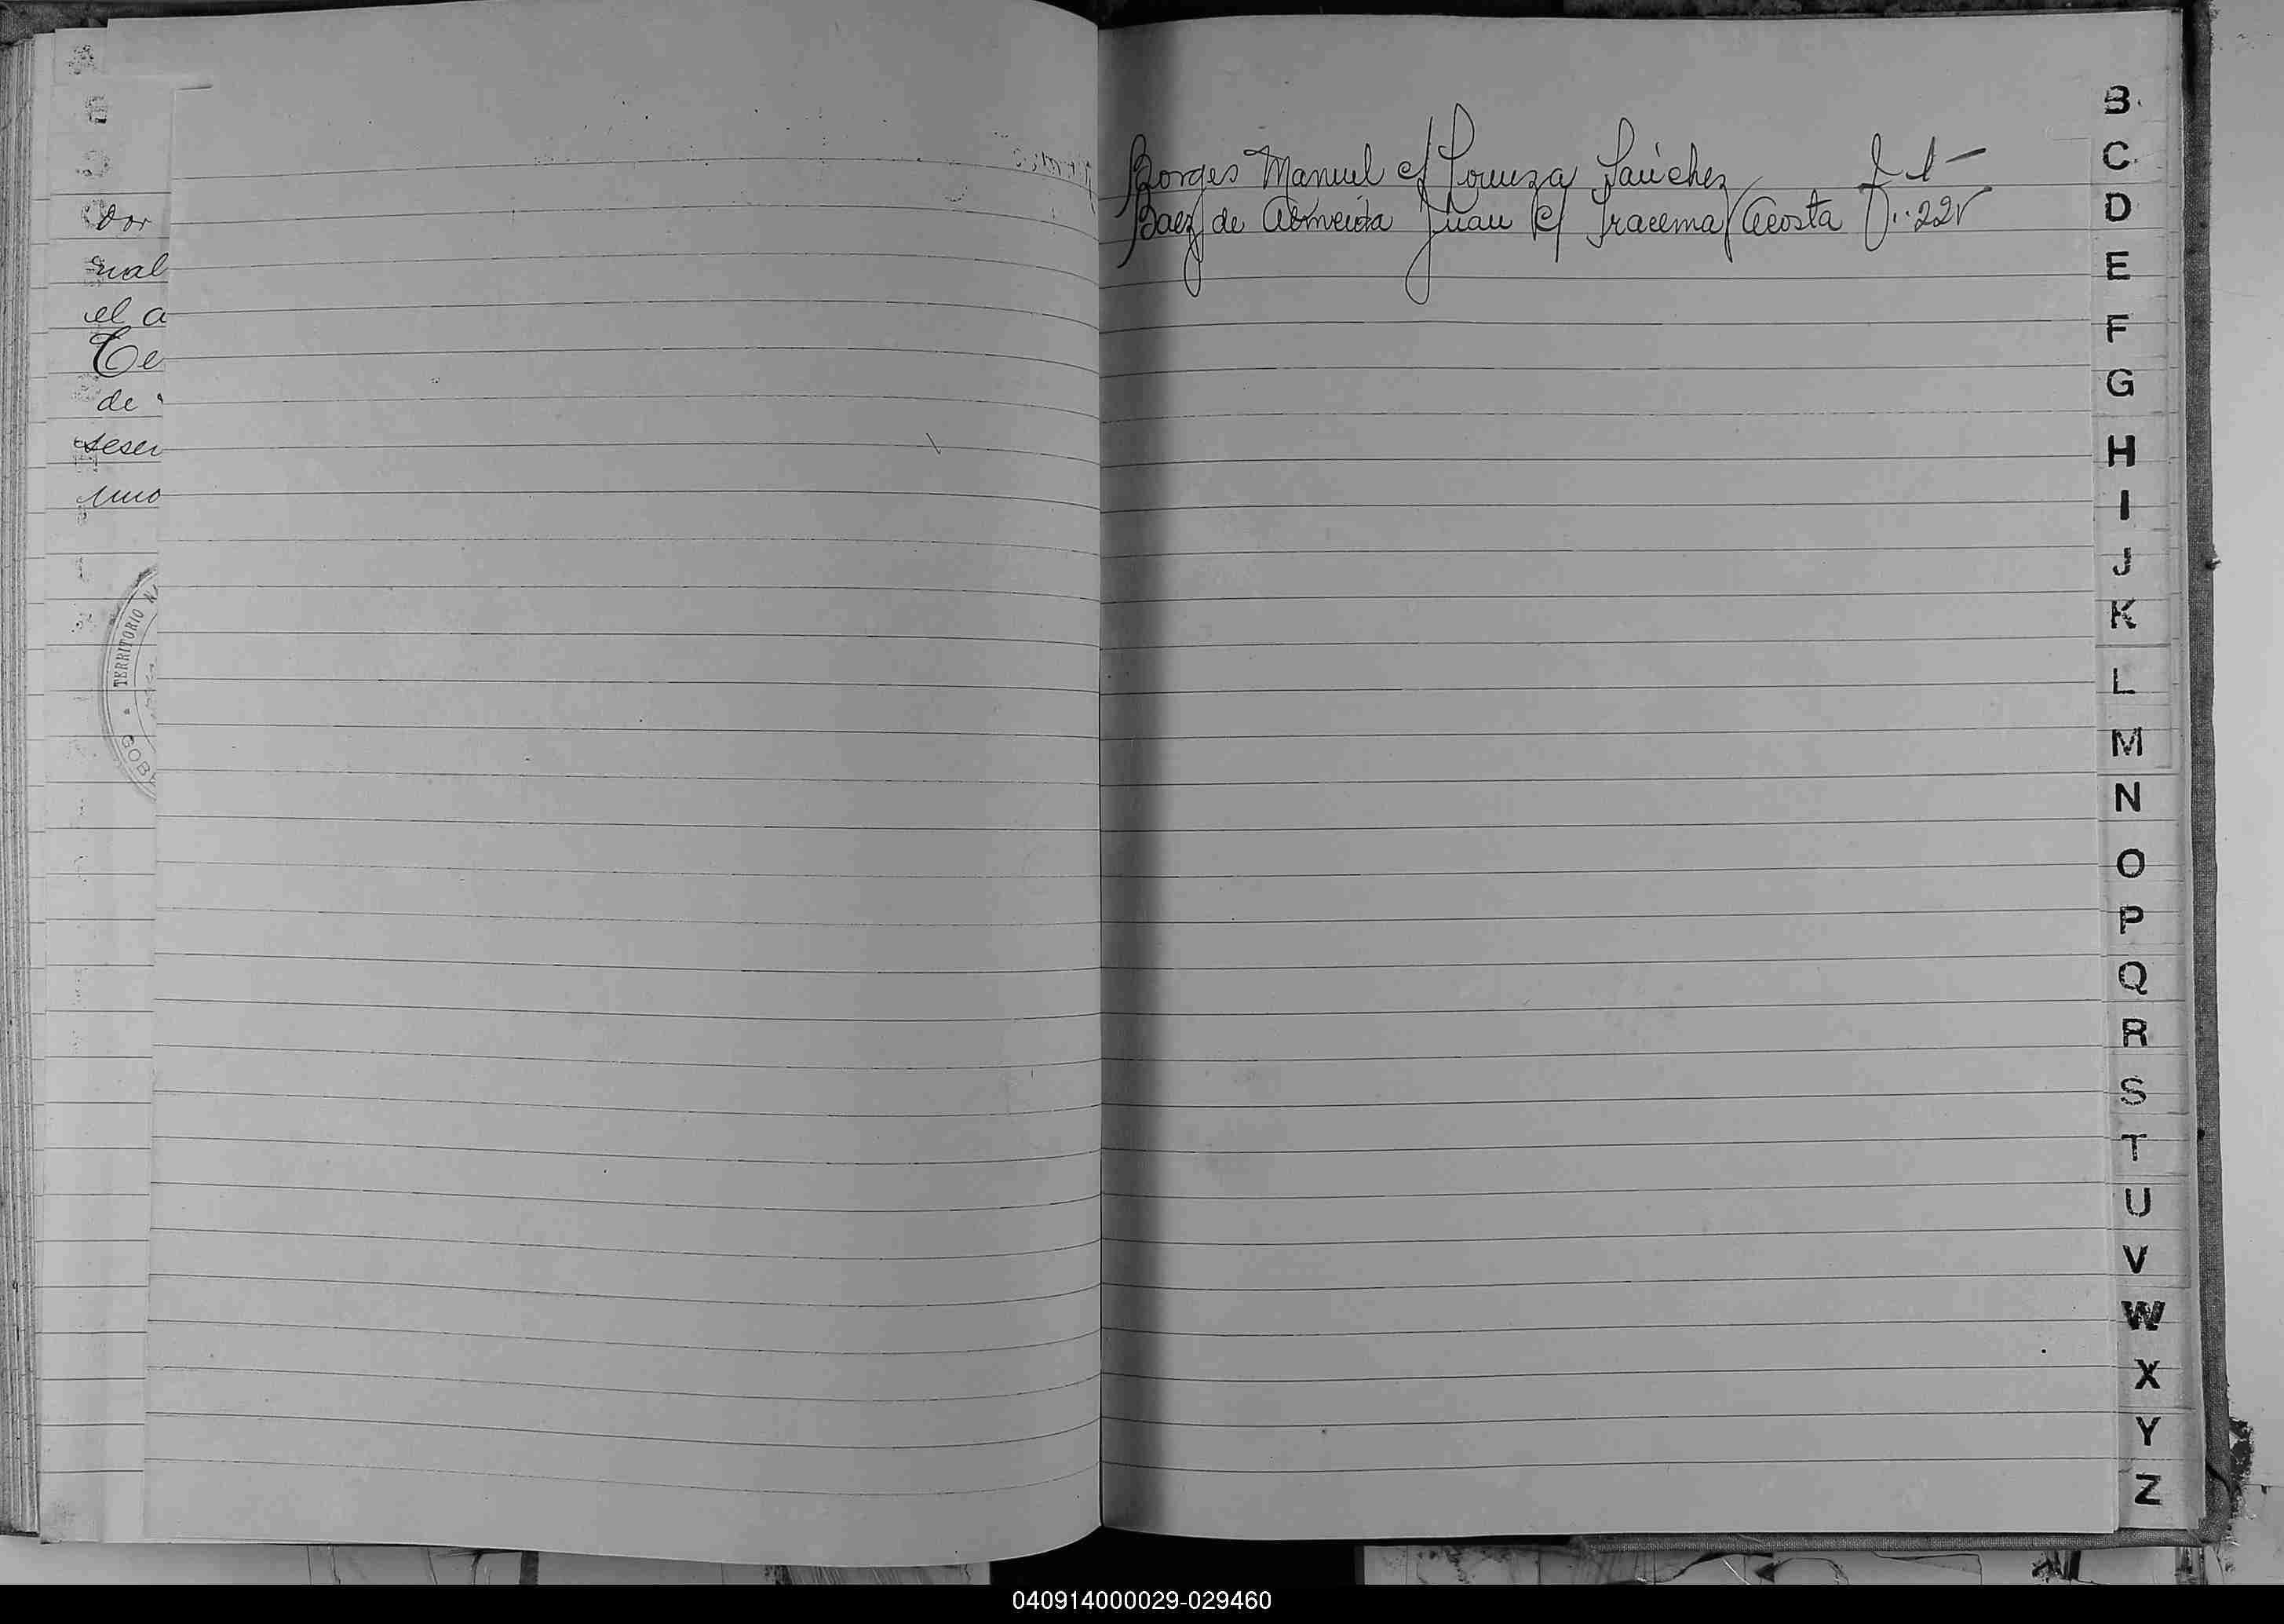 dor
nal
el a
Te
de
sesen
uno
TERRITORIO NA
GOBE
Borges Manuel c/ Souza Sánchez f 1-
Baez de Almeida Juan c/ Iracema Acosta f. 22v
B
C
D
E
F
G
H
I
J
K
L
M
N
O
P
Q
R
S
T
U
V
W
X
Y
Z
040914000029-029460